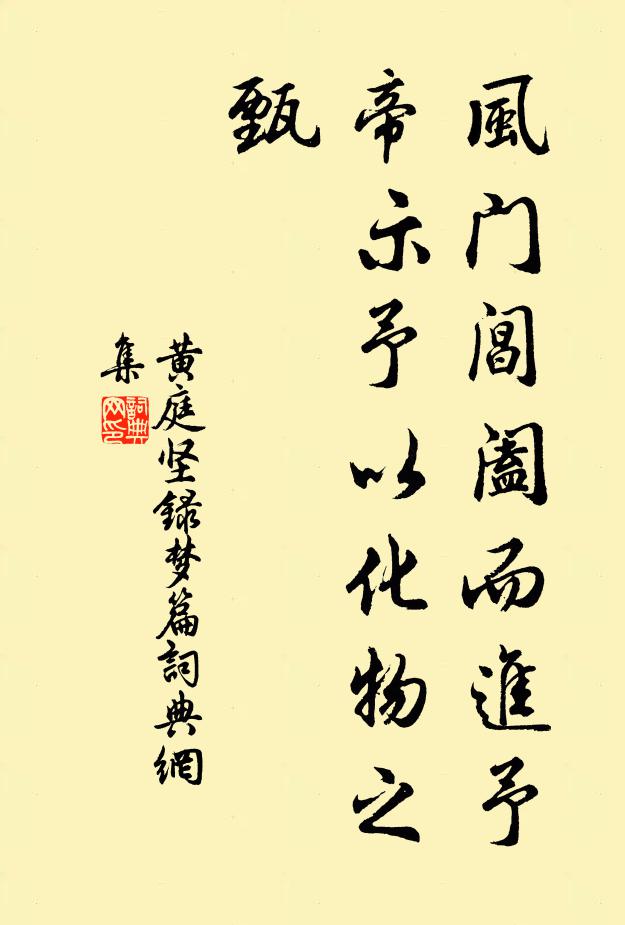 風门閶闔而進予
帝示予以化物之
甄
黄庭坚録梦篇詞典網
集
詞典
网印